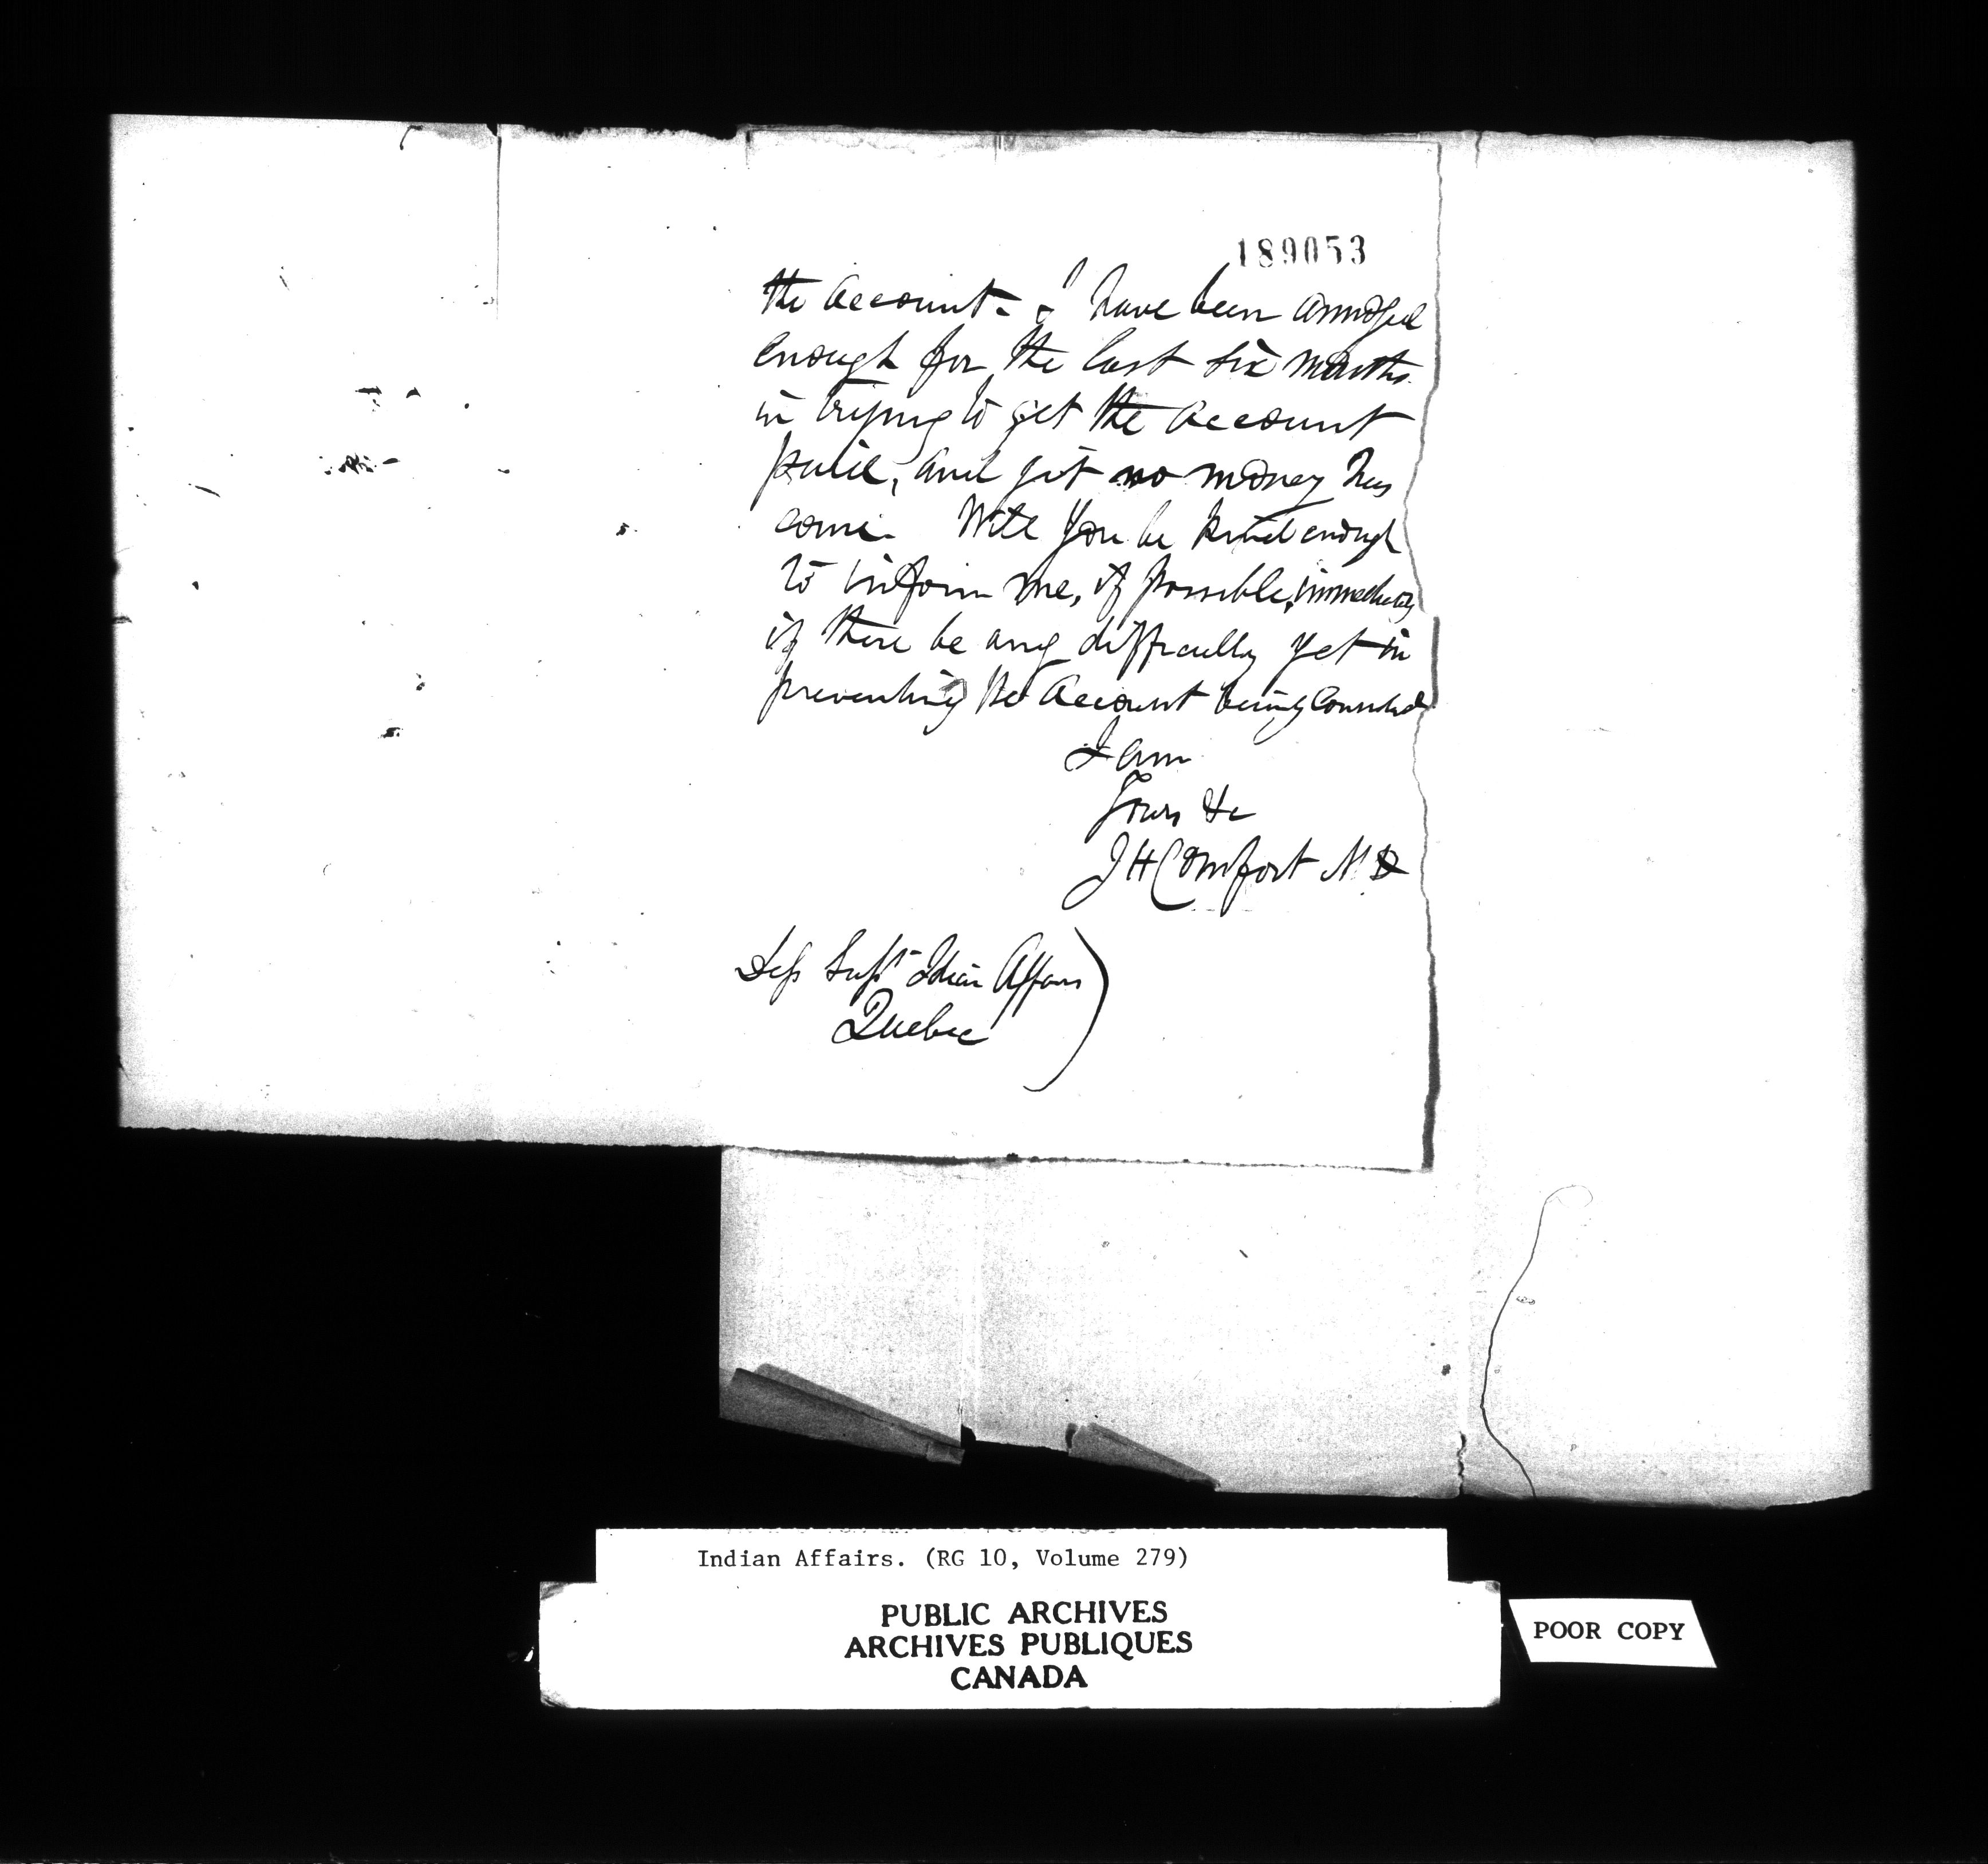 189053
the Account - I have been annoyed
enough for the last six months
in trying to get the Account
paid, and yet no money has
come. Will you be kind enough
to inform me, if possible, immediately
if there be any difficulty yet in
preventing the Account being
I am
Yours &c
J H Comfort M.D
Dep Supt Indian Affairs
Quebec
Indian Affairs. (RG 10, Volume 279)
PUBLIC ARCHIVES
ARCHIVES PUBLIQUES
CANADA
POOR COPY